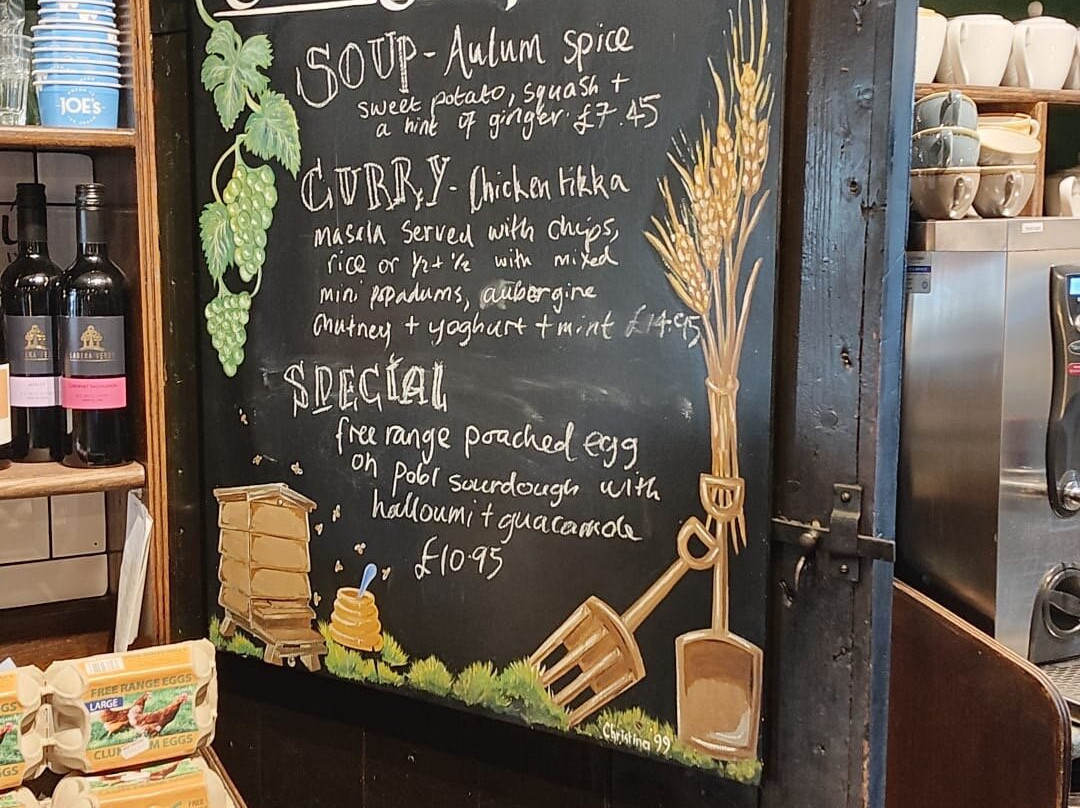 SOUP - Aulum spice
sweet potato, squash +
a hint of ginger. £7.45
CURRY - Chicken tikka
masala served with chips,
rice or ½ + ½ with mixed
mini popadums, aubergine
chutney + yoghurt + mint
SPECIAL
free range poached egg
on pobl sourdough with
halloumi + guacamole
£10.95
Christina 99
JOE'S
CABERNET SAUVIGNON
FREE RANGE EGGS
LARGE
M EGGS
FREE